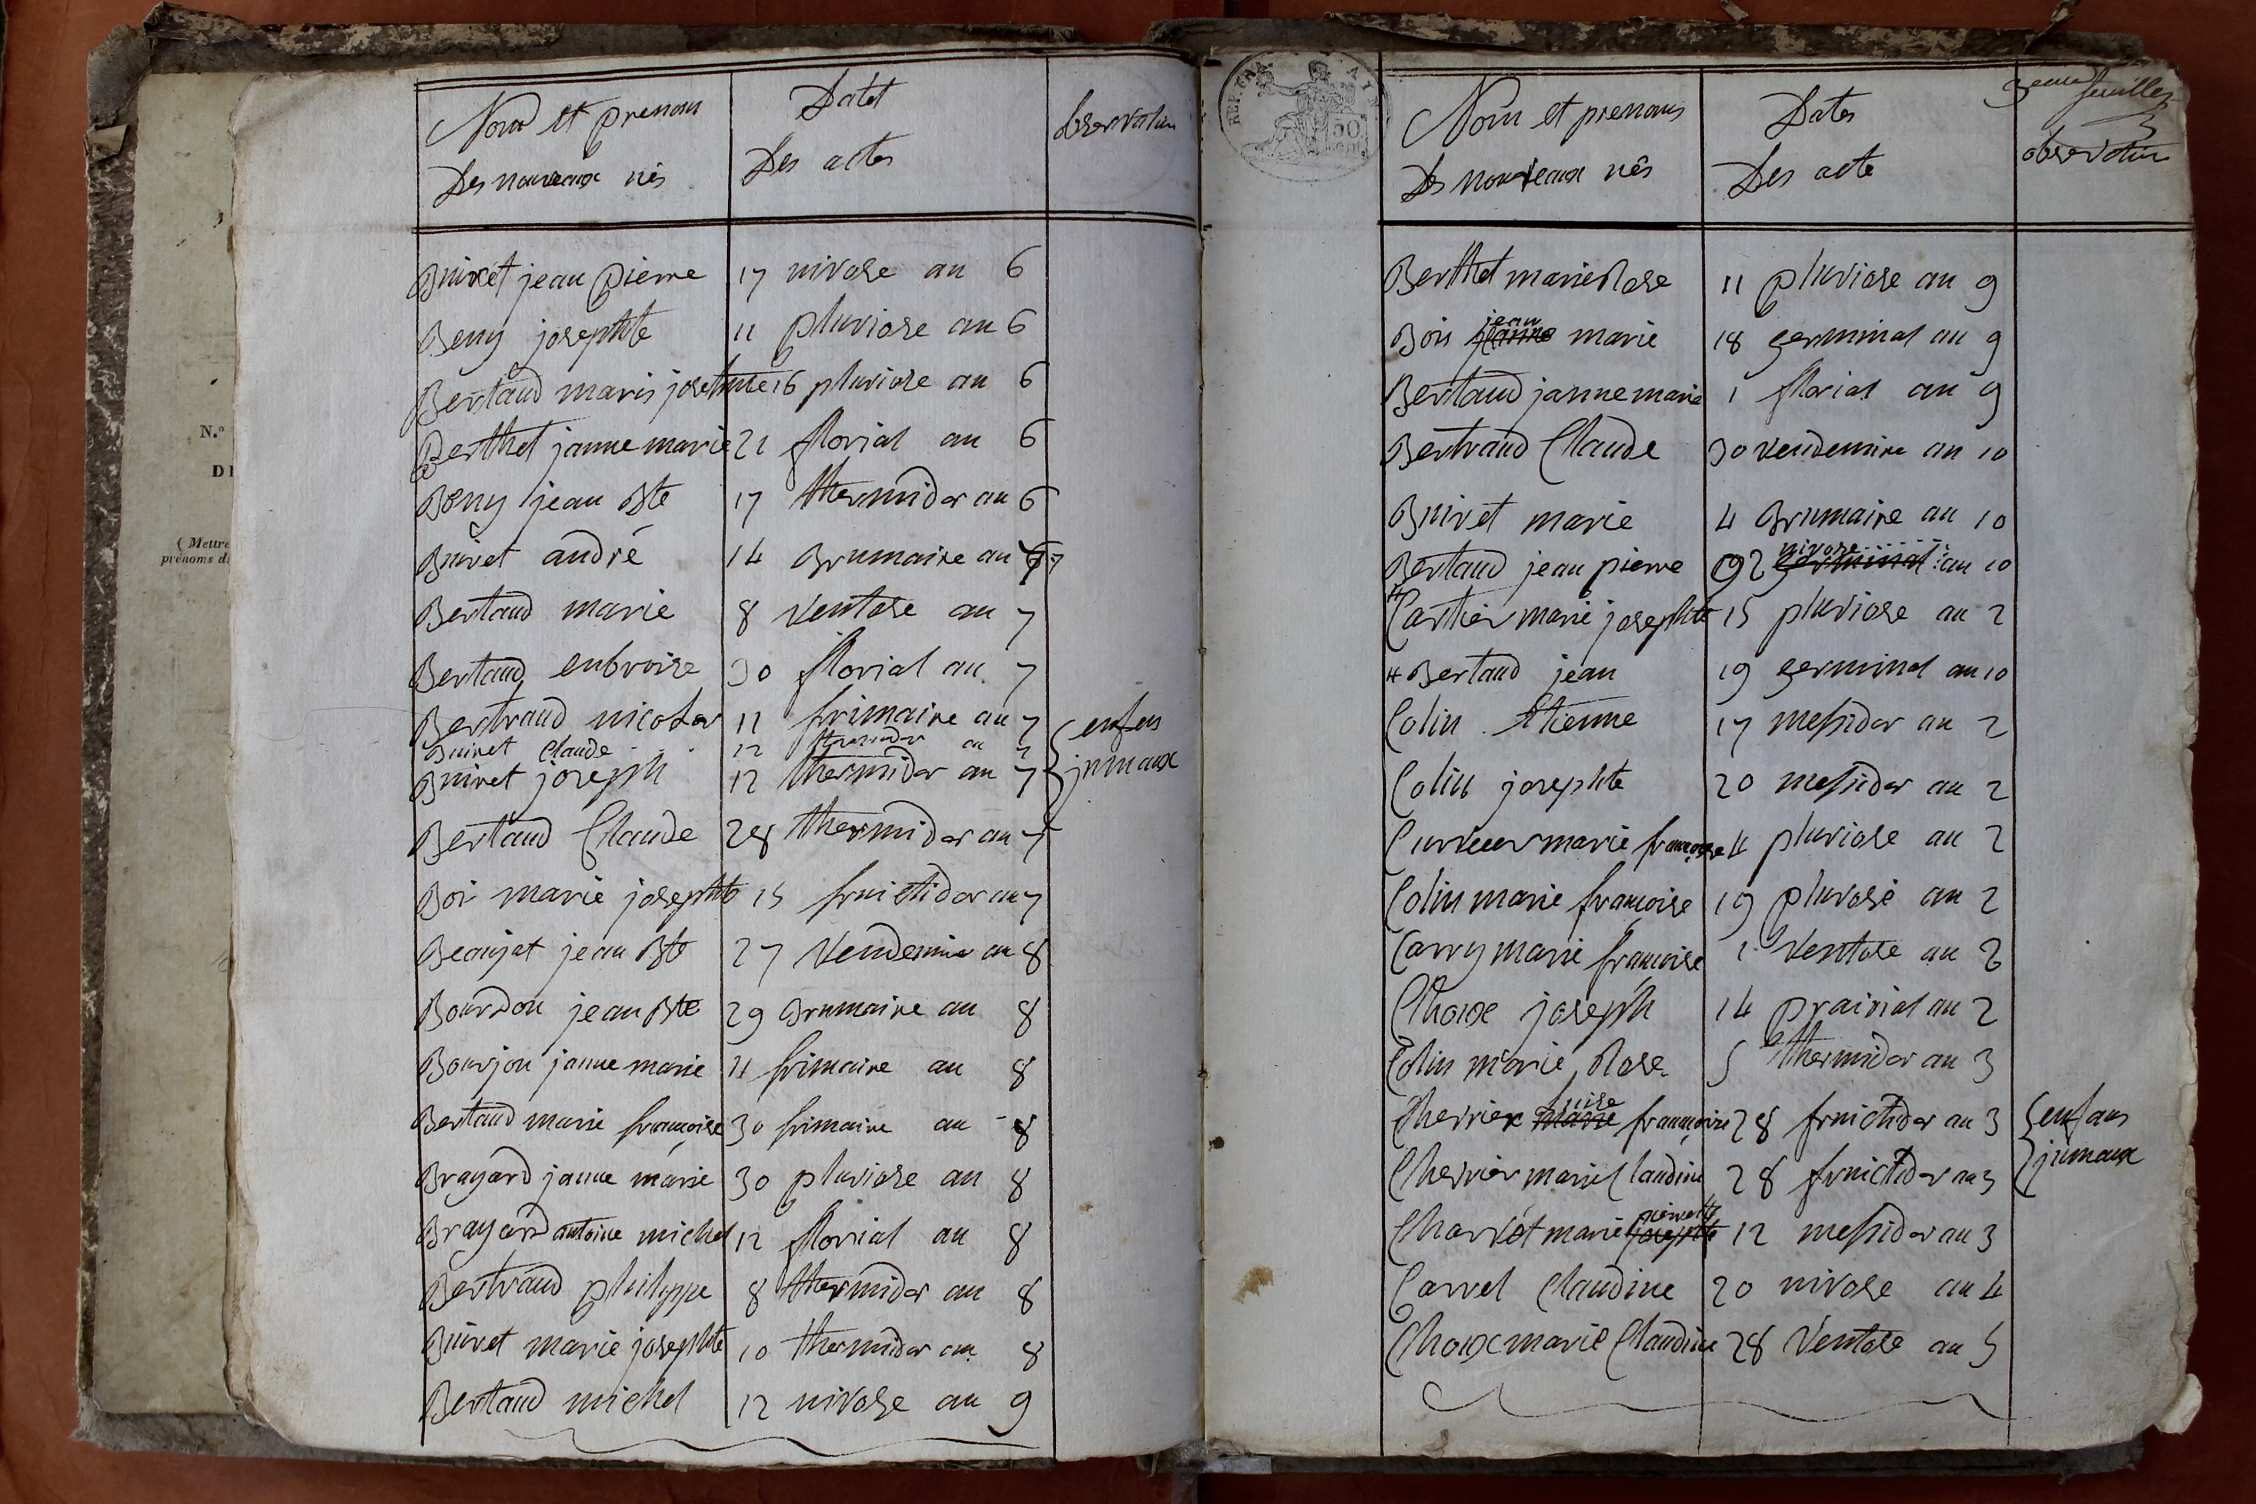 Nom et prenom
Des nouveaux nés
Datet
Des actes
observation
N.º
DE
( Mettre
prénoms d
Buiret jean pierre 17 nivose an 6
Beny josephte 11 pluviose an 6
Bertaud marie josephte 16 pluviose an 6
Berthet janne marie 21 florial an 6
Beny jean Bte 17 thermidor an 6
Buiret andré 14 Brumaire an 7
Bertaud marie 8 ventose an 7
Bertaud enbroise 30 florial an 7
Bertraud nicolas 11 frimaire an 7
Buiret Claude 12 thermidor an 7 enfens
Buiret joseph 12 thermidor an 7 jumaux
Bertaud Claude 28 thermidor an 7
Boi marie josephte 15 fruictidor an 7
Beaujat jean Bte 27 Vendemire an 8
Bourdon jean Bte 29 Brumaire an 8
Bourjon janne marie 11 frimaire an 8
Bertaud marie françoise 30 frimaire an 8
Brayard janne marie 30 pluviose an 8
Brayard antoine michel 12 florial an 8
Bertraud philippe 8 thermidor an 8
Buiret marie josephte 10 thermidor an 8
Bertaud michel 12 nivose an 9
REP. FRA.
50
cent.
Nom et prenoms
Des nouveaux nés
Dates
Des acte
3eme feuillet
3
observation
Berthet marie Rose 11 pluviose an 9
jean
Bois janne marie 18 germinal an 9
Bertaud janne marie 1 florial an 9
Bertraud Claude 30 vendemire an 10
Buiret marie 4 Brumaire an 10
nivose
Bertaud jean pierre 92 germinal an 10
Cartier marie josephte 15 pluviose an 2
Bertaud jean 19 germinal an 10
Colin Etienne 17 messidor an 2
Colin josephte 20 messidor an 2
Curteur marie françoise 4 pluviose an 2
Colin marie françoise 19 pluvose an 2
Carry marie françoise 1 Ventose an 2
Choux joseph 14 prairial an 2
Colin marie Rose 5 thermidor an 3
luise
Cherrier marie françoise 28 fruictidor an 3 enfans
Cherrier marie Claudine 28 fruictidor an 3 jumaux
pierrette
Charlot marie josephte 12 messidor an 3
Carrel Claudine 20 nivose an 4
Choux marie Claudine 28 Ventose an 5